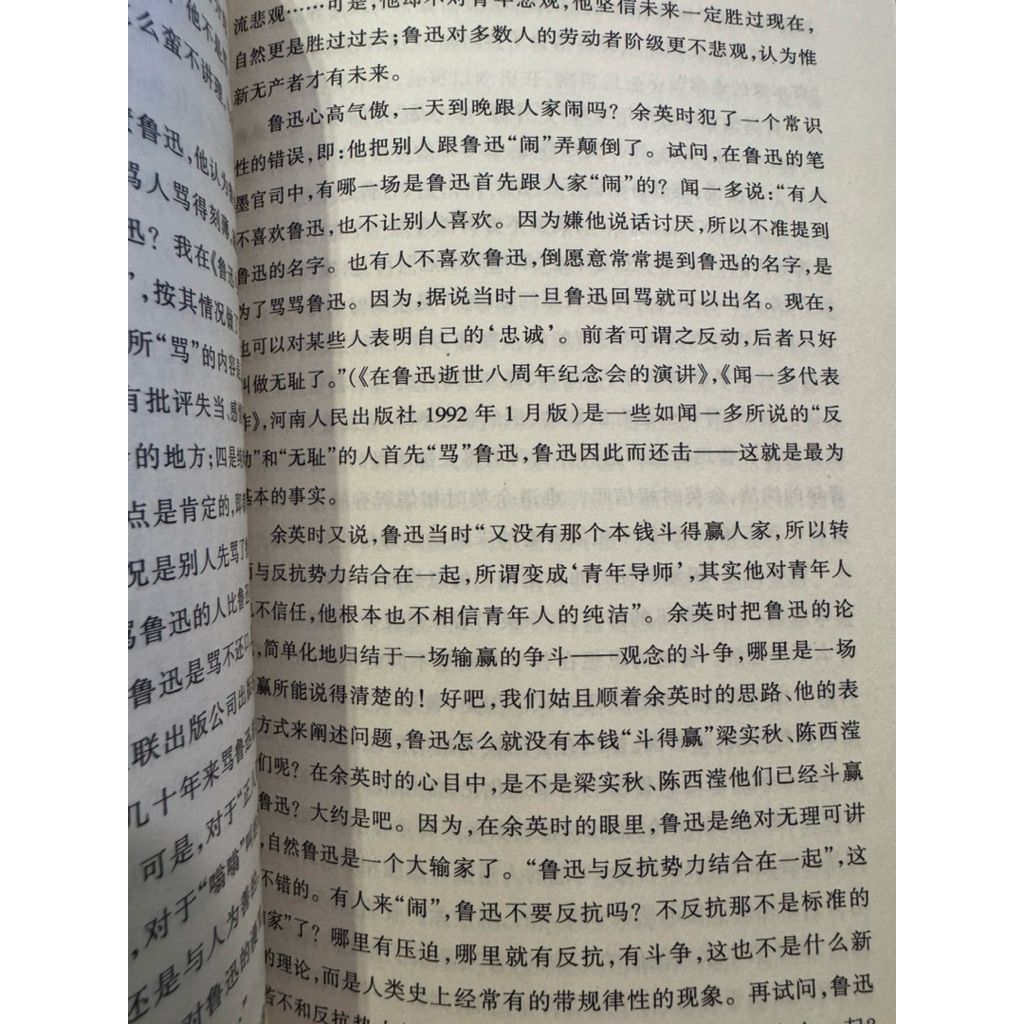 ，他不是
么蛮不讲理，
鲁迅，他认为
骂人骂得刻薄，
迅？我在《鲁迅
”，按其情况做了
所“骂”的内容是
有批评失当、感
的地方；四是
点是肯定的，即
况是别人先骂了
骂鲁迅的人比鲁迅
鲁迅是骂不还口
联出版公司出版
几十年来骂鲁迅
可是，对于“正人
，对于“嗡嗡”叫的
还是与人为善的
对鲁迅的
流悲观……可是，他却不对青年悲观，他坚信未来一定胜过现在，
自然更是胜过过去；鲁迅对多数人的劳动者阶级更不悲观，认为惟
新无产者才有未来。
鲁迅心高气傲，一天到晚跟人家闹吗？余英时犯了一个常识
性的错误，即：他把别人跟鲁迅“闹”弄颠倒了。试问，在鲁迅的笔
墨官司中，有哪一场是鲁迅首先跟人家“闹”的？闻一多说：“有人
不喜欢鲁迅，也不让别人喜欢。因为嫌他说话讨厌，所以不准提到
鲁迅的名字。也有人不喜欢鲁迅，倒愿意常常提到鲁迅的名字，是
为了骂骂鲁迅。因为，据说当时一旦鲁迅回骂就可以出名。现在，
也可以对某些人表明自己的‘忠诚’。前者可谓之反动，后者只好
叫做无耻了。”（《在鲁迅逝世八周年纪念会的演讲》，《闻一多代表
作》，河南人民出版社 1992 年 1 月版）是一些如闻一多所说的“反
动”和“无耻”的人首先“骂”鲁迅，鲁迅因此而还击——这就是最为
基本的事实。
余英时又说，鲁迅当时“又没有那个本钱斗得赢人家，所以转
而与反抗势力结合在一起，所谓变成‘青年导师’，其实他对青年人
也不信任，他根本也不相信青年人的纯洁”。余英时把鲁迅的论
，简单化地归结于一场输赢的争斗——观念的斗争，哪里是一场
赢所能说得清楚的！好吧，我们姑且顺着余英时的思路、他的表
方式来阐述问题，鲁迅怎么就没有本钱“斗得赢”梁实秋、陈西滢
们呢？在余英时的心目中，是不是梁实秋、陈西滢他们已经斗赢
鲁迅？大约是吧。因为，在余英时的眼里，鲁迅是绝对无理可讲
，自然鲁迅是一个大输家了。“鲁迅与反抗势力结合在一起”，这
不错的。有人来“闹”，鲁迅不要反抗吗？不反抗那不是标准的
家”了？哪里有压迫，哪里就有反抗，有斗争，这也不是什么新
的理论，而是人类史上经常有的带规律性的现象。再试问，鲁迅
若不和反抗势